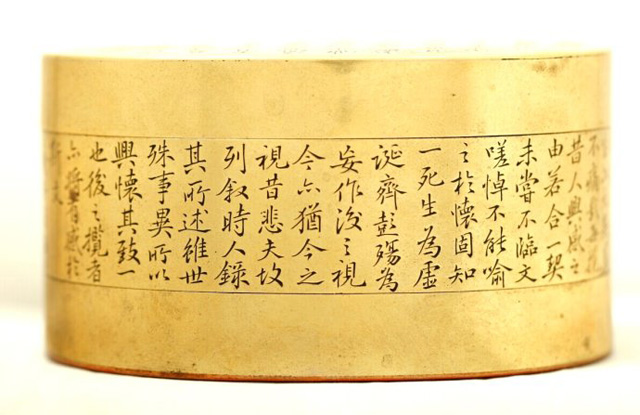 不痛哉每攬
昔人興感之
由若合一契
未嘗不臨文
嗟悼不能喻
之於懷固知
一死生為虛
誕齊彭殤為
妄作後之視
今亦猶今之
視昔悲夫故
列叙時人錄
其所述雖世
殊事異所以
興懷其致一
也後之攬者
亦將有感於